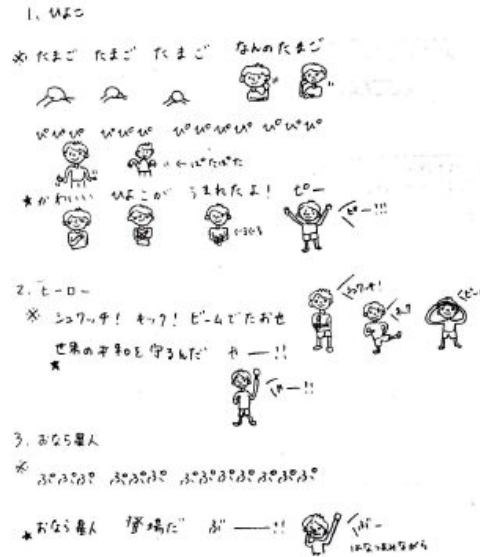 1、ひよこ
※ たまご たまご たまご なんのたまご
ぴぴぴ ぴぴぴ ぴぴぴぴ ぴぴぴ
←ぱたぱた
★かわいい ひよこが うまれたよ! ピー
ピー!!!
2. ヒーロー
シュワッチ!
※ シュワッチ! キック! ビームでたおせ
世界の平和を守るんだ やー!!
★
やー!!
3. おなら星人
※ ぷぷぷ ぷぷぷ ぷぷぷぷぷぷぷ
★おなら星人 登場だ ぶ——!!
ぶー
はなつまみながら